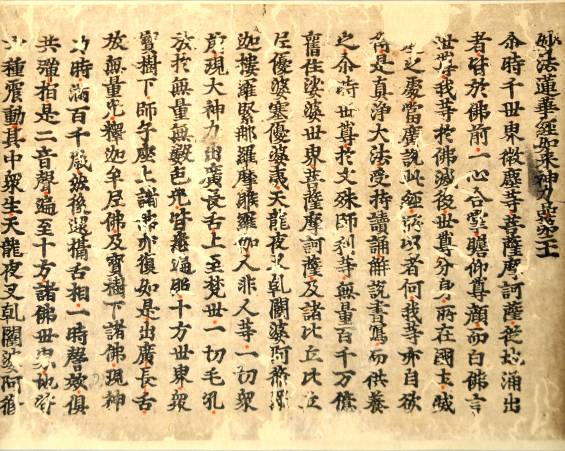 妙法蓮華經如來神力品第二十一
尒時千世界微塵等菩薩摩訶薩從地涌出
者皆於佛前一心合掌瞻仰尊顏而白佛言
世尊我等於佛滅後世尊分身所在國土滅
之處當廣說此經所以者何我等亦自欲
得是真淨大法受持讀誦解說書寫而供養
之尒時世尊於文殊師利等無量百千万億
舊住娑婆世界菩薩摩訶薩及諸比丘比丘
尼優婆塞優婆夷天龍夜叉乹闥婆阿脩羅
迦樓羅緊那羅摩睺羅伽人非人等一切衆
前現大神力出廣長舌上至梵世一切毛孔
放於無量無數色光皆悉遍照十方世界衆
寶樹下師子座上諸佛亦復如是出廣長舌
放無量光釋迦牟尼佛及寶樹下諸佛現神
力時滿百千歲然後還攝舌相一時謦欬俱
共彈指是二音聲遍至十方諸佛世界地皆
六種震動其中衆生天龍夜叉乹闥婆阿脩